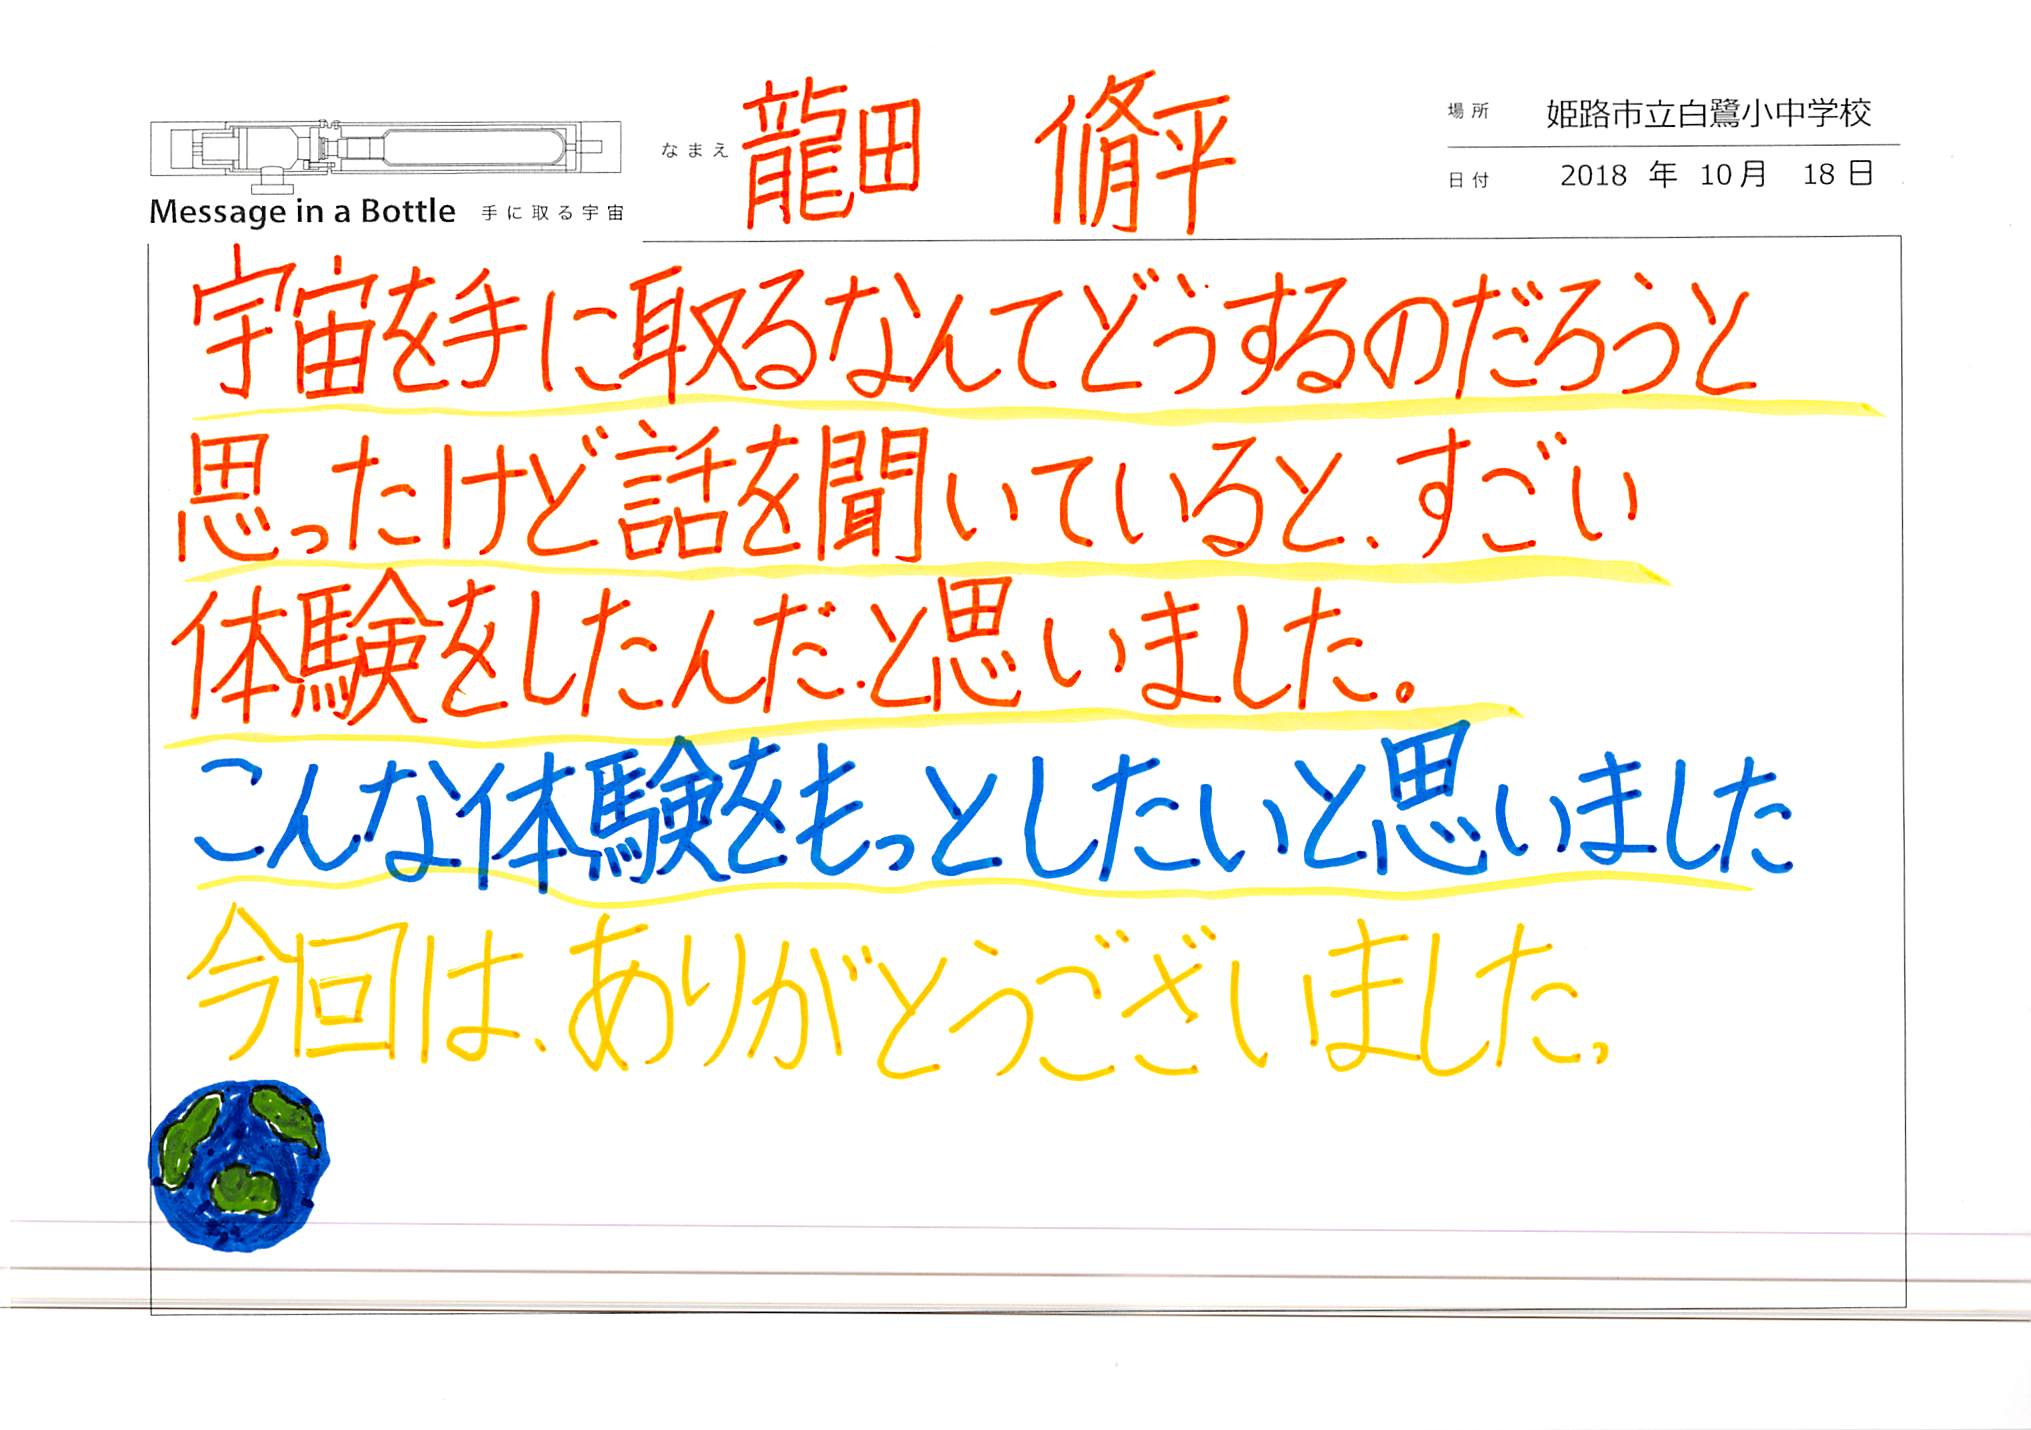 なまえ 龍田 脩平
場所 姫路市立白鷺小中学校
日付 2018 年 10月 18日
Message in a Bottle 手に取る宇宙
宇宙を手に取るなんてどうするのだろうと
思ったけど話を聞いていると、すごい
体験をしたんだ.と思いました。
こんな体験をもっとしたいと思いました
今回は、ありがとうございました。